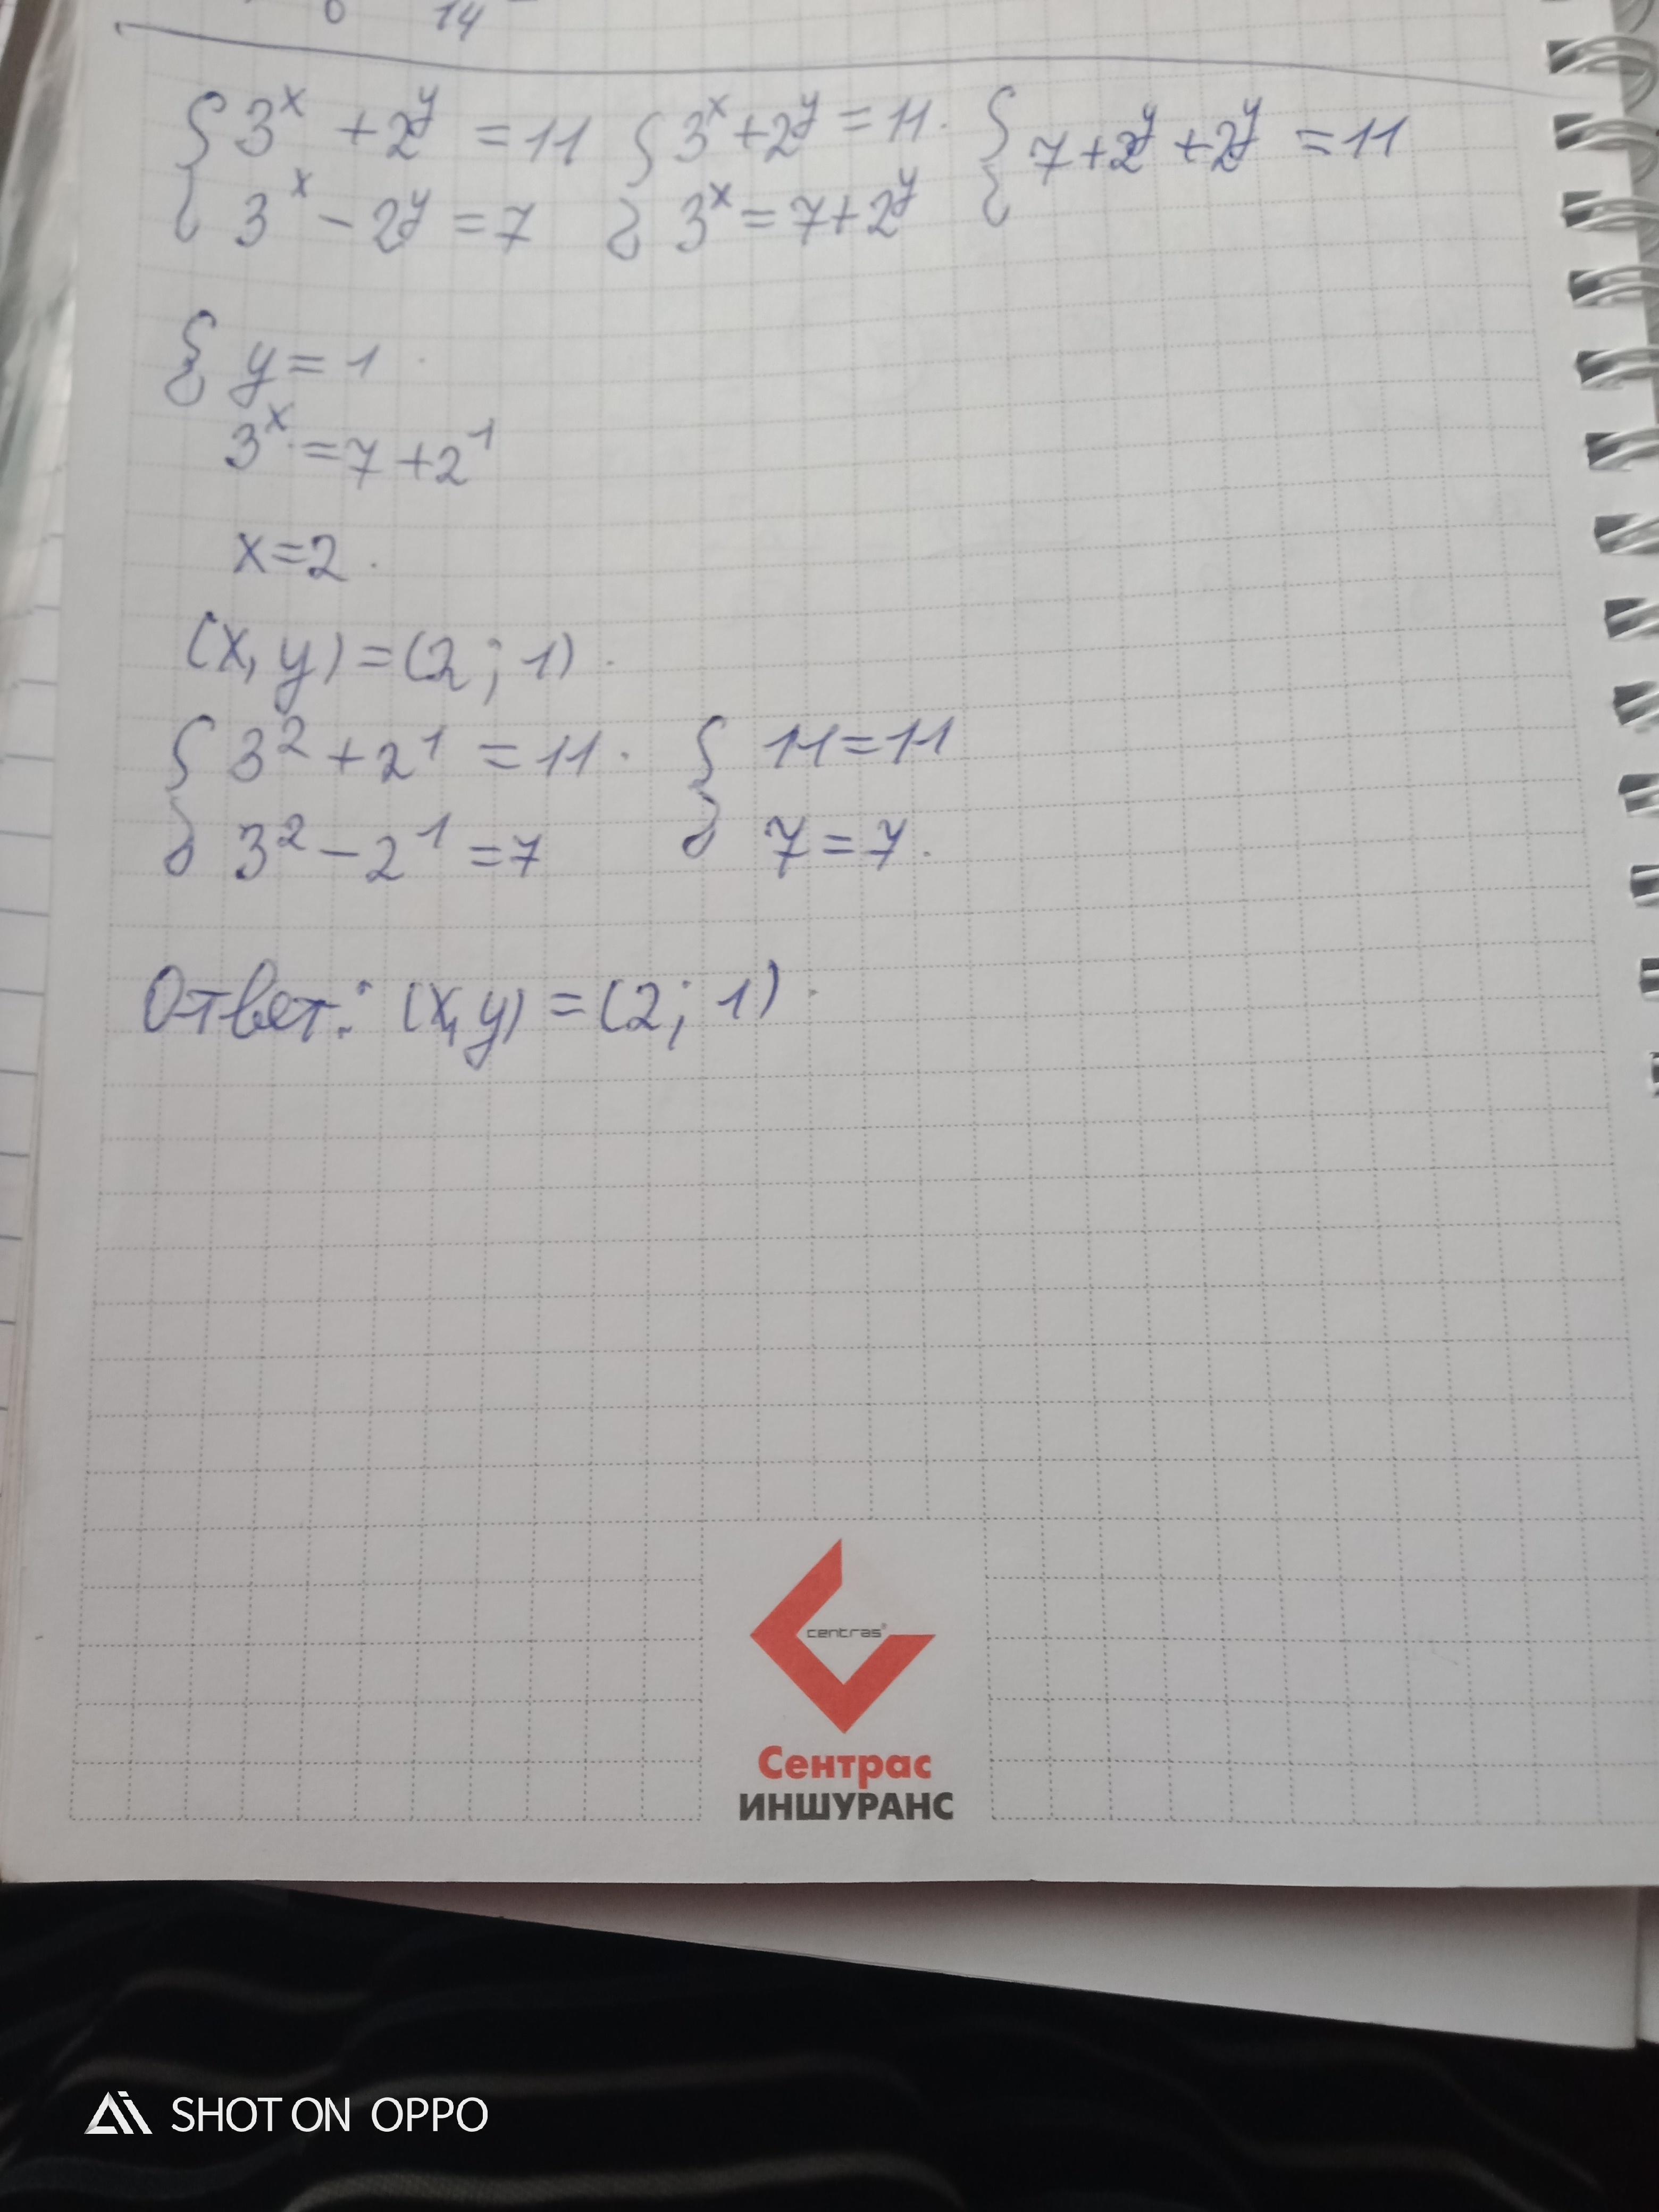 6 14
3^x + 2^y = 11 3^x + 2^y = 11. 7 + 2^y + 2^y = 11
3^x - 2^y = 7 3^x = 7 + 2^y
y = 1.
3^x = 7 + 2^1
x = 2.
(x, y) = (2; 1).
3^2 + 2^1 = 11. 11 = 11
3^2 - 2^1 = 7 7 = 7.
Ответ: (x, y) = (2; 1).
centras®
Сентрас
ИНШУРАНС
SHOT ON OPPO